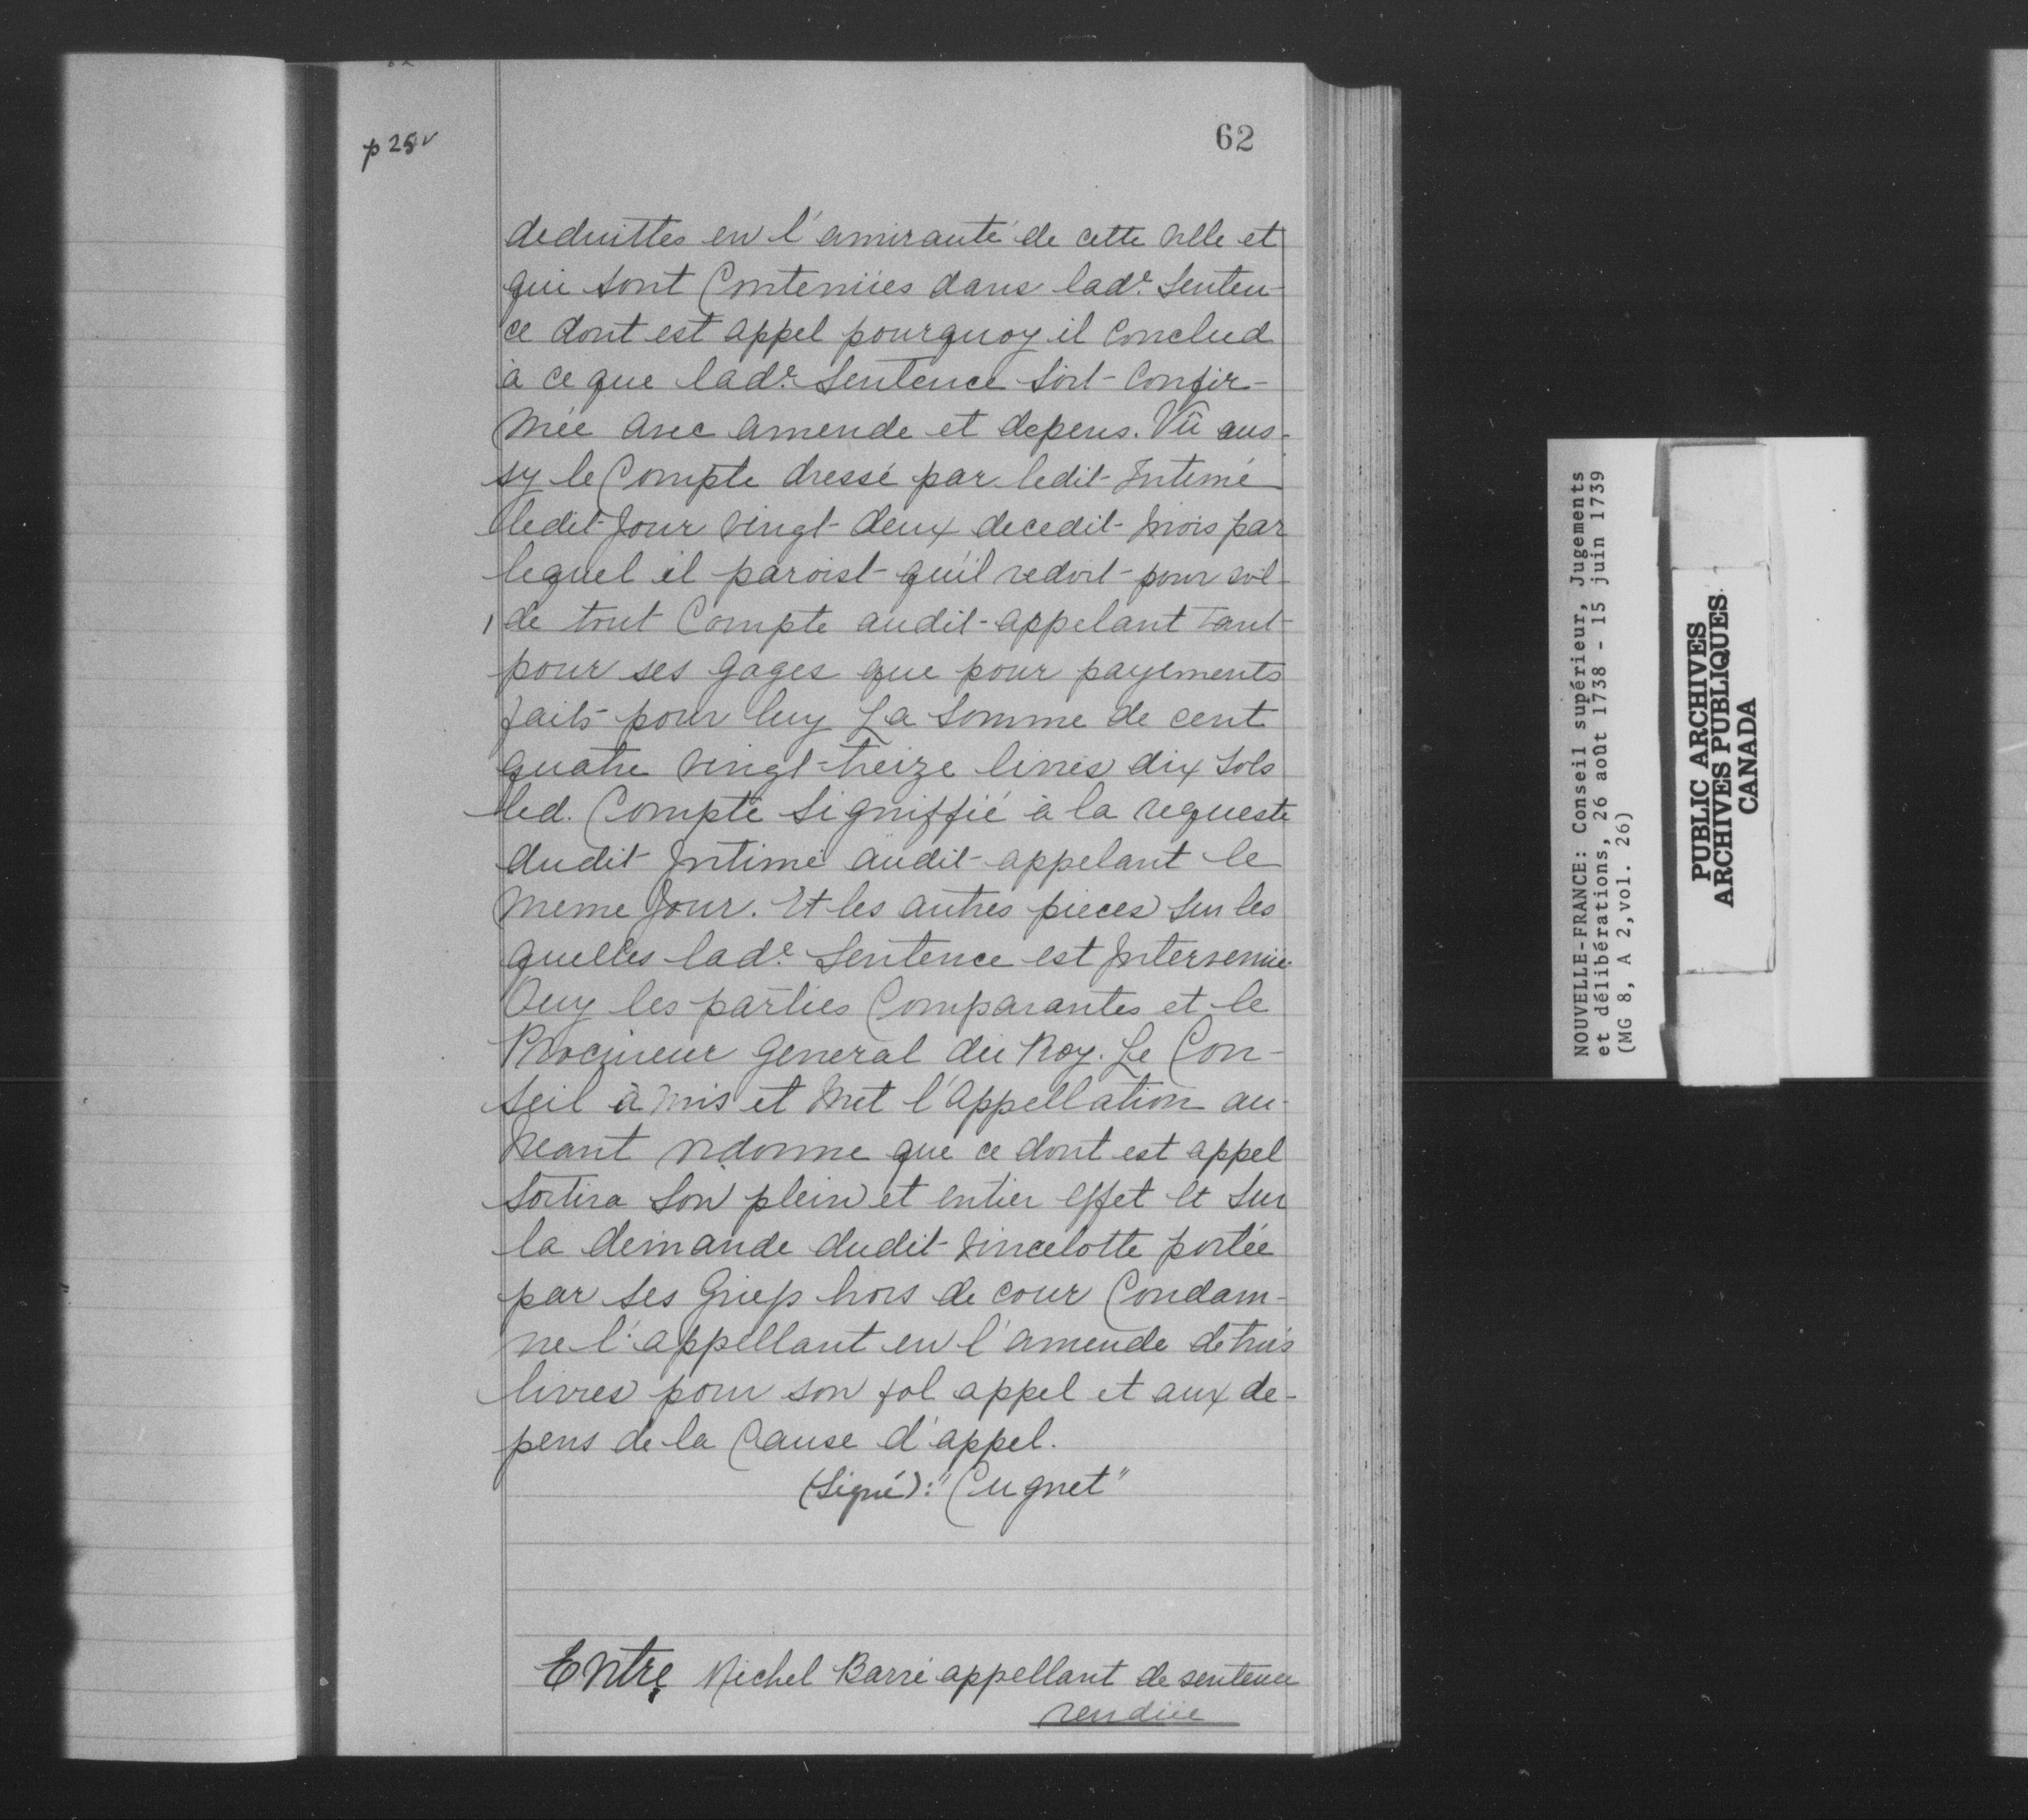 p 28v
62
deduittes en l'amirauté de cette ville et
qui sont Contenües dans lade. Senten-
ce dont est appel pourquoy il Conclud
à ce que lade. Sentence soit Confir-
mée avec amende et depens. Vû aus-
sy le Compte dressé par ledit Intimé
ledit Jour vingt deux decedit mois par
lequel il paroist qu'il redoit pour sol-
de tout Compte audit appelant tant
pour ses gages que pour payements
faits pour luy La Somme de cent
quatre vingt-treize livres dix Sols
led. Compte Signiffié à la requeste
dudit Intimé audit appelant le
meme Jour. Et les autres pieces Sur les
quelles lade. Sentence est Intervenüe
Ouy les parties Comparantes et le
Procureur General du Roy. Le Con-
seil à mis et met l'appellation au
neant ordonne que ce dont est appel
Sortira Son plein et entier effet et Sur
la demande dudit Vincelotte portée
par ses Griefs hors de cour Condam-
ne l'appellant en l'amende de trois
livres pour son fol appel et aux de-
pens de la Cause d'appel.
(Signé): "Cugnet"
Entre Michel Barré appellant de sentence
rendüe
NOUVELLE-FRANCE: Conseil supérieur, Jugements
et délibérations, 26 août 1738 - 15 juin 1739
(MG 8, A 2,vol. 26)
PUBLIC ARCHIVES
ARCHIVES PUBLIQUES
CANADA